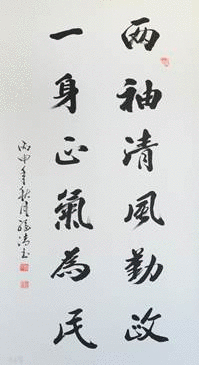 两袖清风勤政
一身正氣為民
丙申年秋月